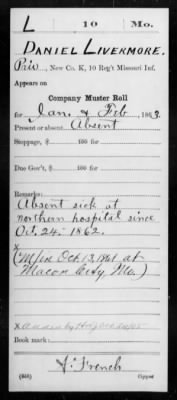 L | 10 | Mo.
Daniel Livermore.
Priv, New Co. K, 10 Reg't Missouri Inf.
Appears on
Company Muster Roll
for Jan. & Feb, 1863.
Present or absent Absent
Stoppage, $ 100 for
Due Gov't, $ 100 for
Remarks:
Absent sick at
northern hospital since
Oct. 24, 1862.
(M/in Oct 13, 1861 at
Macon City, Mo.)
Book mark:
French
(858) Copyist